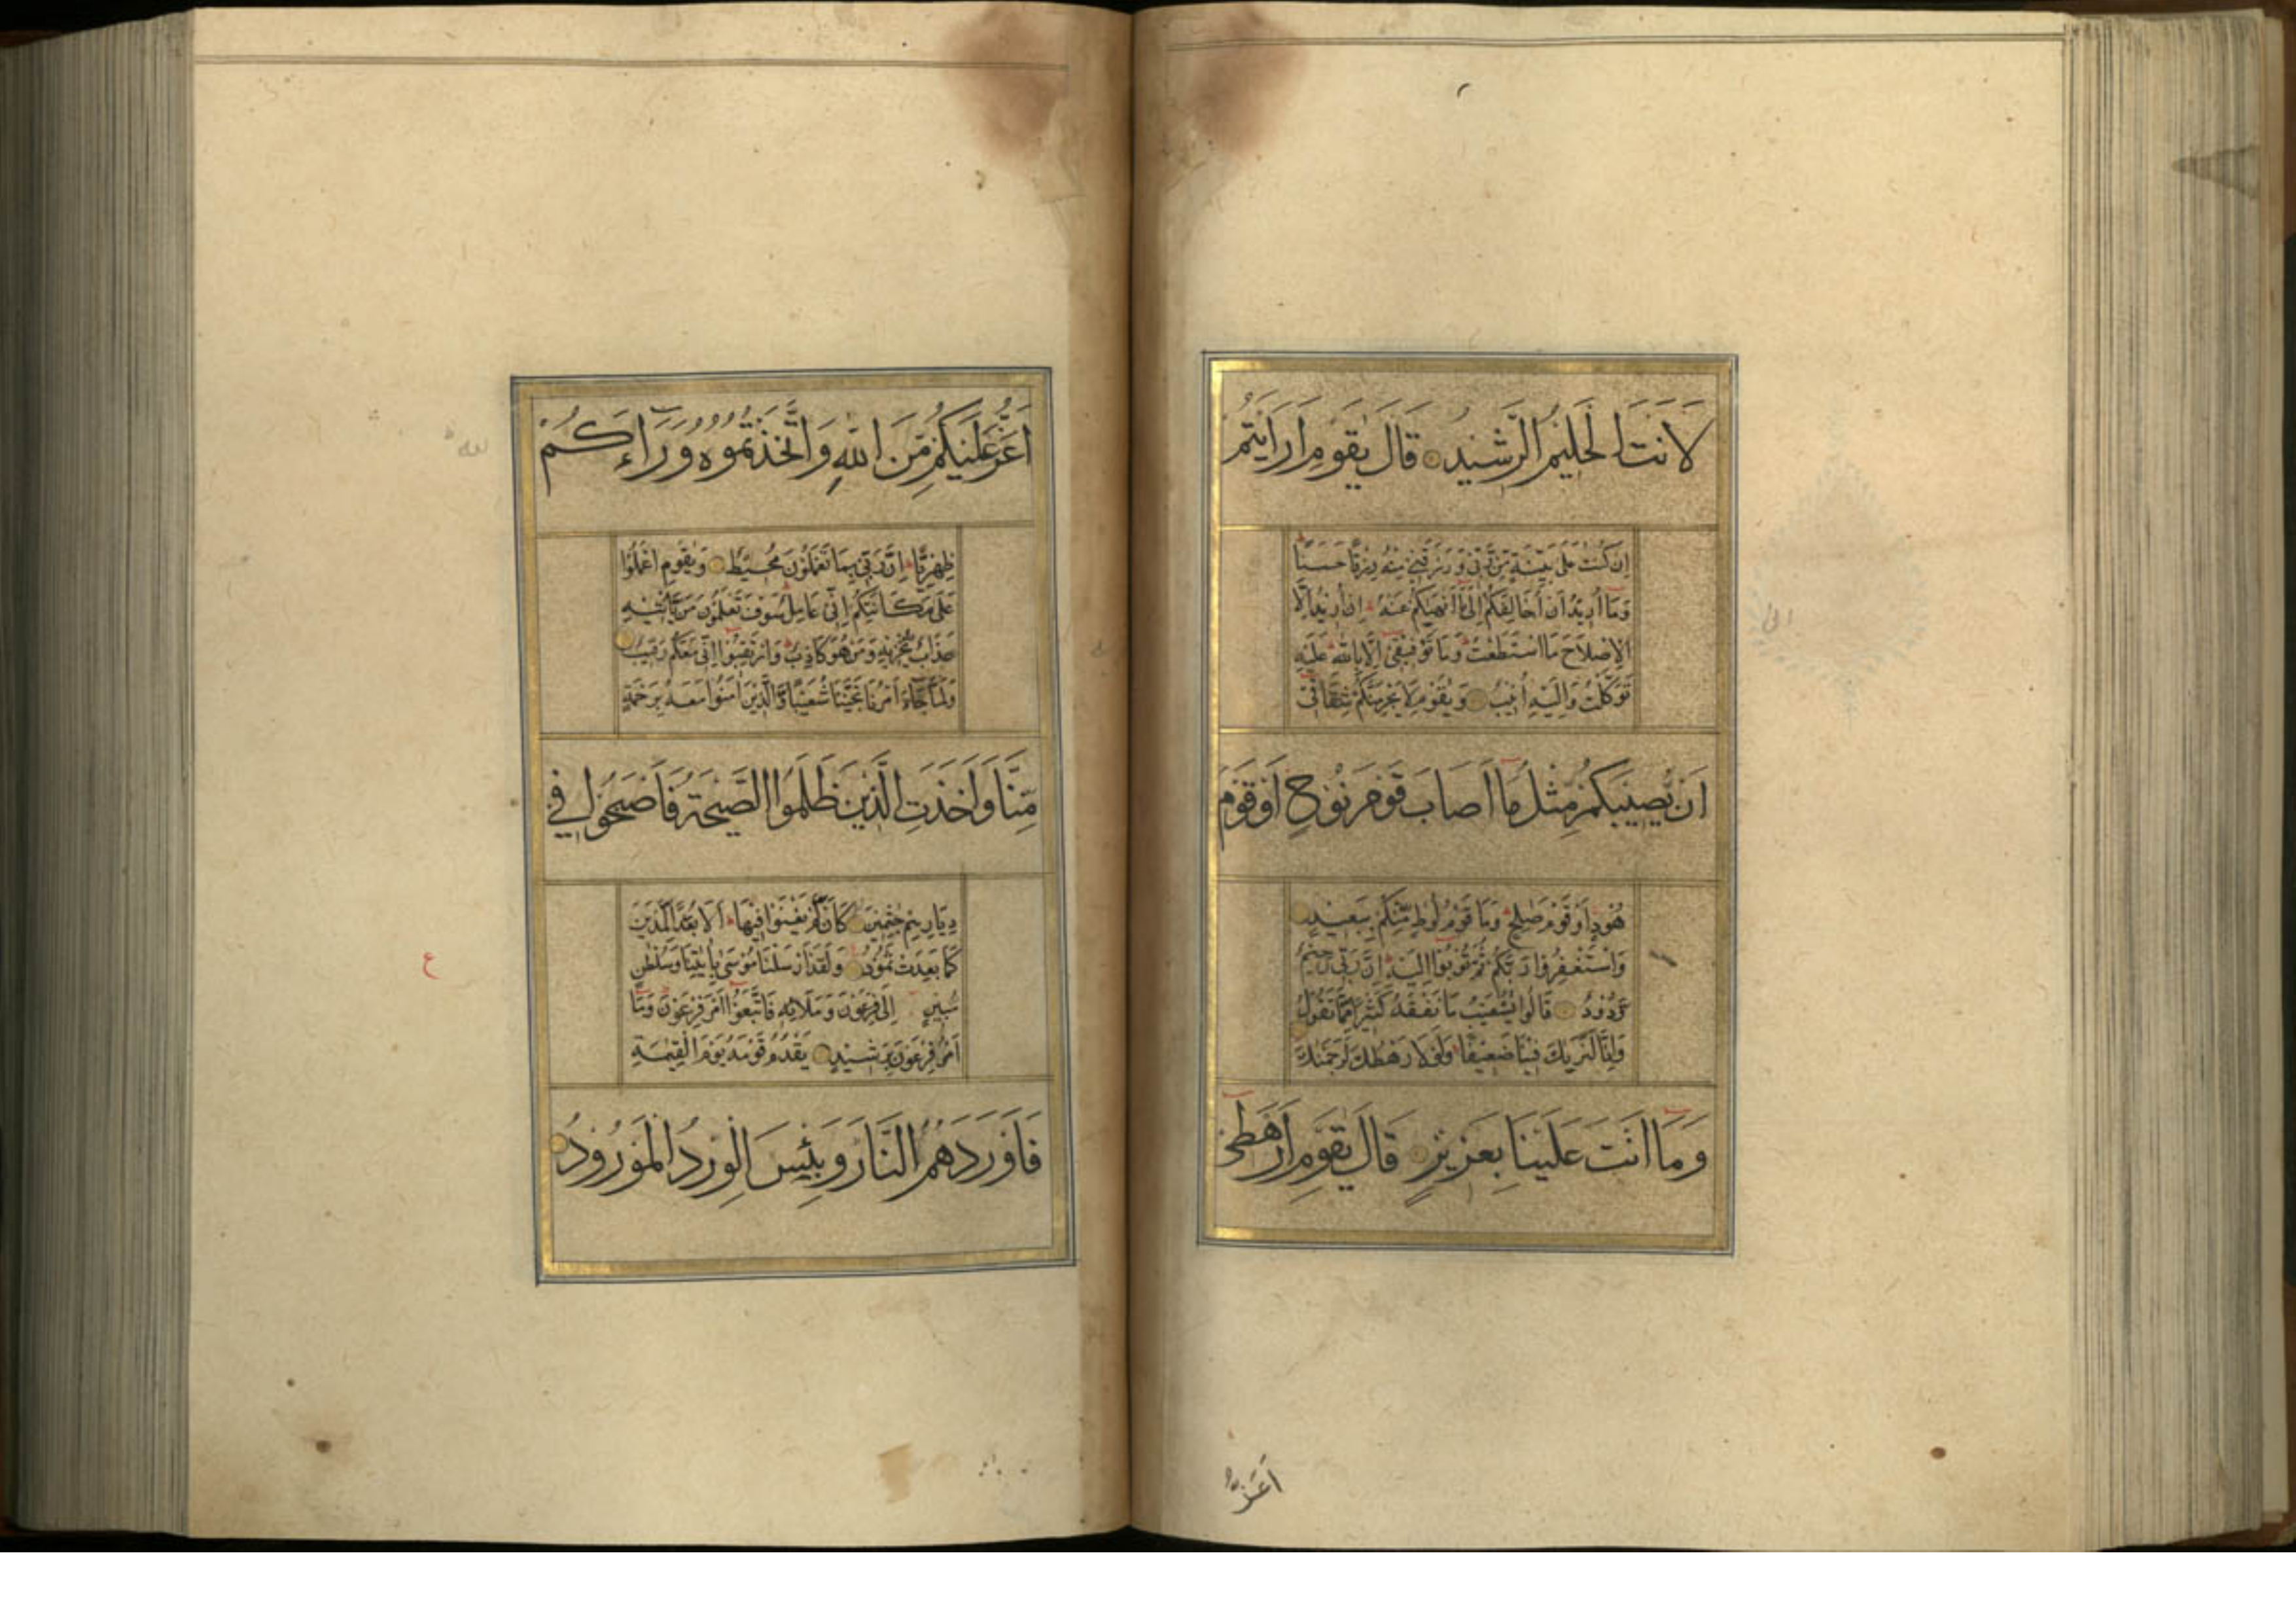 لَاَنْتَ الْحَلِيمُ الرَّشِيدُ قَالَ يٰقَوْمِ اَرَاَيْتُمْ
اِنْ كُنْتُ عَلٰى بَيِّنَةٍ مِّنْ رَّبِّى وَرَزَقَنِى مِنْهُ رِزْقًا حَسَنًا
وَمَا اُرِيدُ اَنْ اُخَالِفَكُمْ اِلٰى مَا اَنْهٰيكُمْ عَنْهُ اِنْ اُرِيدُ اِلَّا
الْاِصْلَاحَ مَا اسْتَطَعْتُ وَمَا تَوْفِيقِى اِلَّا بِاللّٰهِ عَلَيْهِ
تَوَكَّلْتُ وَاِلَيْهِ اُنِيبُ وَيٰقَوْمِ لَا يَجْرِمَنَّكُمْ شِقَاقِى
اَنْ يُّصِيبَكُمْ مِّثْلُ مَا اَصَابَ قَوْمَ نُوْحٍ اَوْ قَوْمَ
هُودٍ اَوْ قَوْمَ صٰلِحٍ وَمَا قَوْمُ لُوْطٍ مِّنْكُمْ بِبَعِيدٍ
وَاسْتَغْفِرُوا رَبَّكُمْ ثُمَّ تُوْبُوْا اِلَيْهِ اِنَّ رَبِّى رَحِيمٌ
وَدُوْدٌ قَالُوا يٰشُعَيْبُ مَا نَفْقَهُ كَثِيرًا مِّمَّا تَقُوْلُ
وَاِنَّا لَنَرٰيكَ فِينَا ضَعِيفًا وَلَوْلَا رَهْطُكَ لَرَجَمْنٰكَ
وَمَا اَنْتَ عَلَيْنَا بِعَزِيزٍ قَالَ يٰقَوْمِ اَرَهْطِى
اَعَزُّ
اَعَزُّ عَلَيْكُمْ مِّنَ اللّٰهِ وَاتَّخَذْتُمُوهُ وَرَاءَكُمْ
ظِهْرِيًّا اِنَّ رَبِّى بِمَا تَعْمَلُوْنَ مُحِيطٌ وَيٰقَوْمِ اعْمَلُوْا
عَلٰى مَكَانَتِكُمْ اِنِّى عَامِلٌ سَوْفَ تَعْلَمُوْنَ مَنْ يَّاْتِيْهِ
عَذَابٌ يُّخْزِيْهِ وَمَنْ هُوَ كَاذِبٌ وَارْتَقِبُوْا اِنِّى مَعَكُمْ رَقِيبٌ
وَلَمَّا جَاءَ اَمْرُنَا نَجَّيْنَا شُعَيْبًا وَّالَّذِيْنَ اٰمَنُوْا مَعَهُ بِرَحْمَةٍ
مِّنَّا وَاَخَذَتِ الَّذِيْنَ ظَلَمُوا الصَّيْحَةُ فَاَصْبَحُوْا فِى
دِيَارِهِمْ جٰثِمِيْنَ كَاَنْ لَّمْ يَغْنَوْا فِيْهَا اَلَا بُعْدًا لِّمَدْيَنَ
كَمَا بَعِدَتْ ثَمُوْدُ وَلَقَدْ اَرْسَلْنَا مُوْسٰى بِاٰيٰتِنَا وَسُلْطٰنٍ
مُّبِيْنٍ اِلٰى فِرْعَوْنَ وَمَلَائِهٖ فَاتَّبَعُوْا اَمْرَ فِرْعَوْنَ وَمَا
اَمْرُ فِرْعَوْنَ بِرَشِيْدٍ يَقْدُمُ قَوْمَهُ يَوْمَ الْقِيٰمَةِ
فَاَوْرَدَهُمُ النَّارَ وَبِئْسَ الْوِرْدُ الْمَوْرُوْدُ
ع